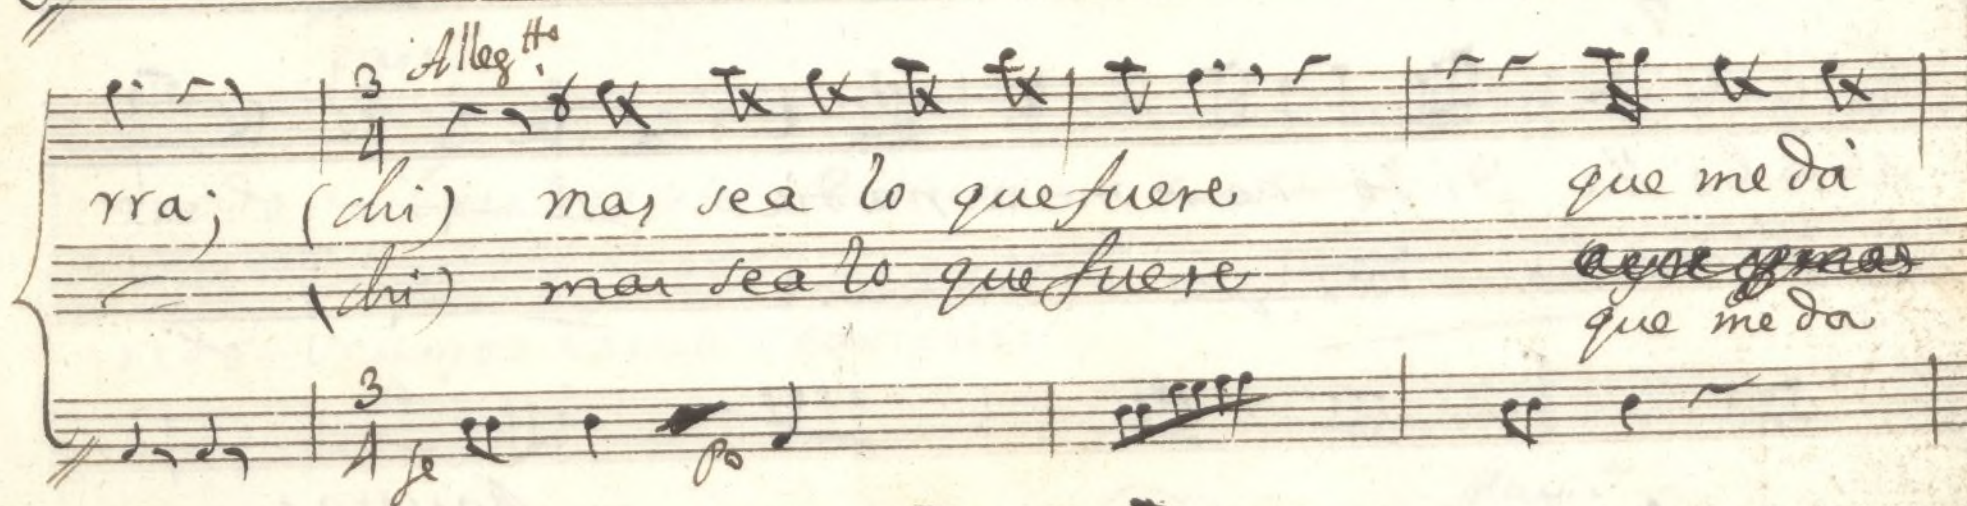 Alleg.tto
3
4
rra; (chi) mas sea lo que fuere que me dà
(chi) mas sea lo que fuere
que me da
3
4
fe
Po